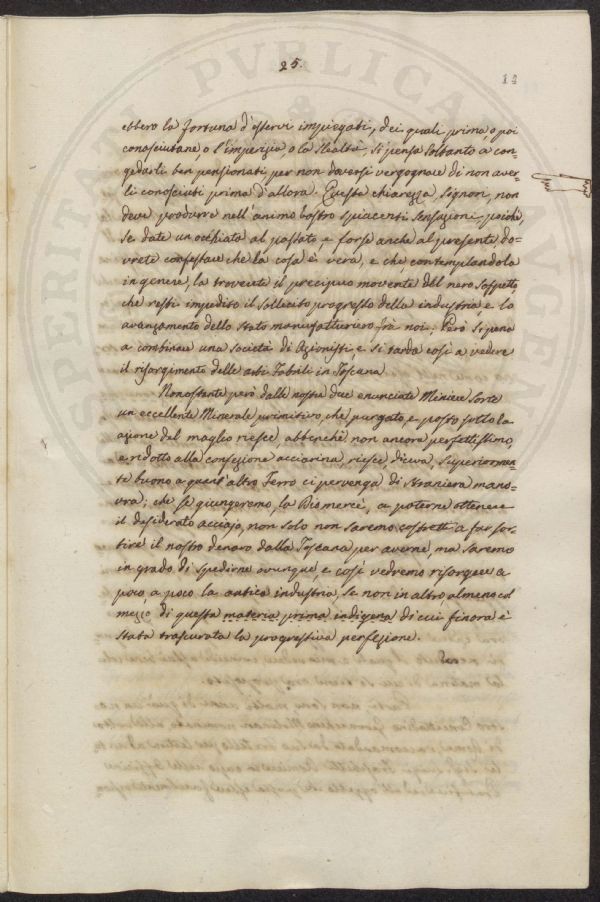 25.
13
ebbero la fortuna d'esservi impiegati, dei quali prima, o poi
conosciutane, o l'imperizia o la slealtà, si pensa soltanto a con-
gedarli ben pensionati, per non doversi vergognare di non aver-
li conosciuti prima d'allora. Questa chiarezza Signori, non
deve produrre nell'animo vostro spiacenti sensazioni, poichè,
se date un'occhiata al passato, e forse anche al presente do-
vrete confessare che la cosa è vera, e che, contemplandola
in genere, la troverete il precipuo movente del nero sospetto
che resti impedito il sollecito progresso della industria, e lo
avanzamento dello stato manufatturiero frà noi. Però si pena
a combinare una Società di Azionisti, e si tarda così a vedere
il risorgimento delle arti Fabrili in Toscana.
Nonostante però dalle nostre due enunciate Miniere sorte
un eccellente Minerale primitivo, che purgato, e posto sotto la
azione del maglio riesce, abbenchè non ancora perfettissimo,
e ridotto alla confezione acciarina, riesce, diceva, superiormen-
te buono a quant'altro Ferro ci pervenga di straniera mano-
vra; che se giungeremo, la Dio mercè, a poterne ottenere
il desiderato acciajo, non solo non saremo costretti a far sor-
tire il nostro denaro dalla Toscana per averne, ma saremo
in grado di spedirne ovunque, e così vedremo risorgere a
poco, a poco la antica industria, se non in altro, almeno col
mezzo di questa materia prima indigena di cui finora è
stata trascurata la progressiva perfezione.